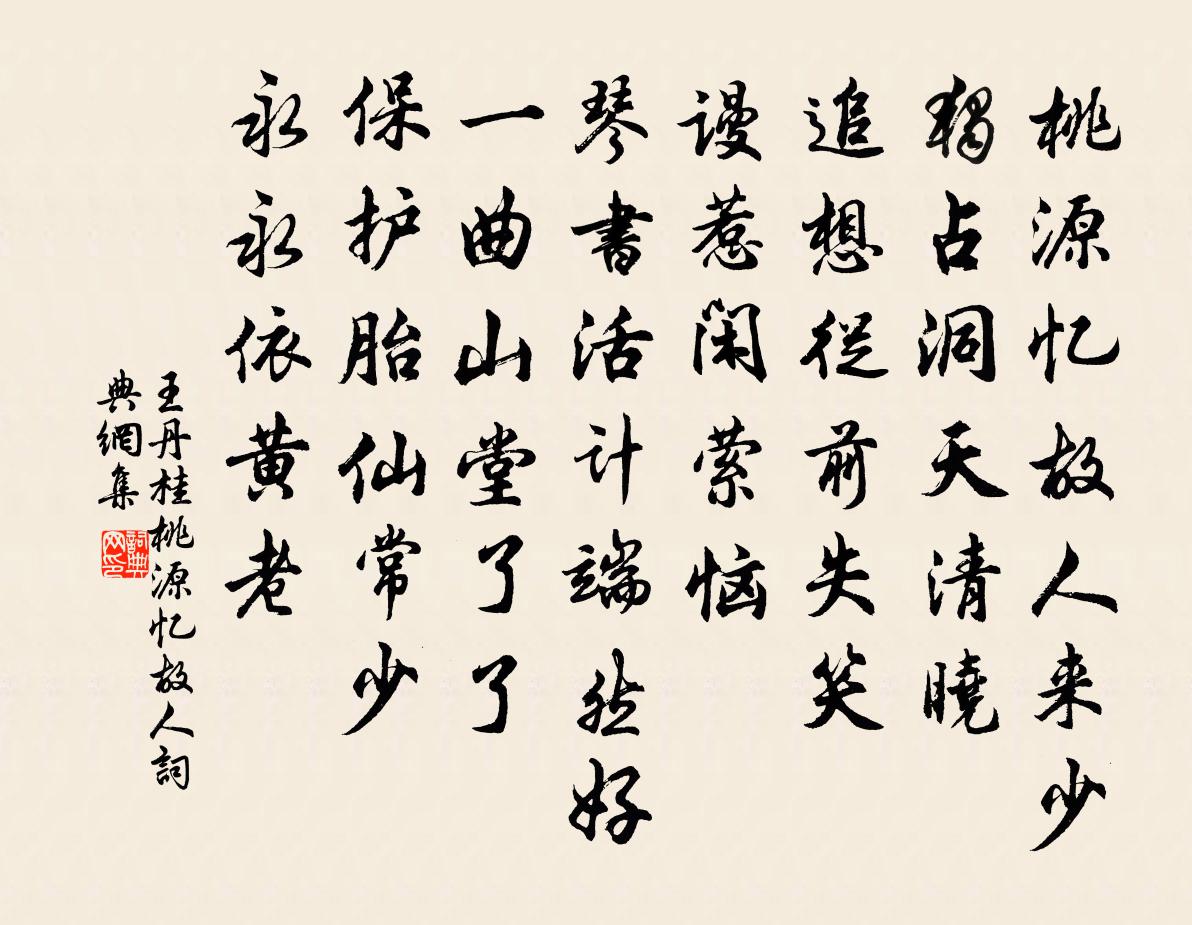 桃源忆故人来少
獨占洞天清曉
追想從前失笑
谩惹闲萦恼
琴書活计端然好
一曲山堂了了
保护胎仙常少
永永依黄老
王丹桂桃源忆故人詞
典網集
詞典网印